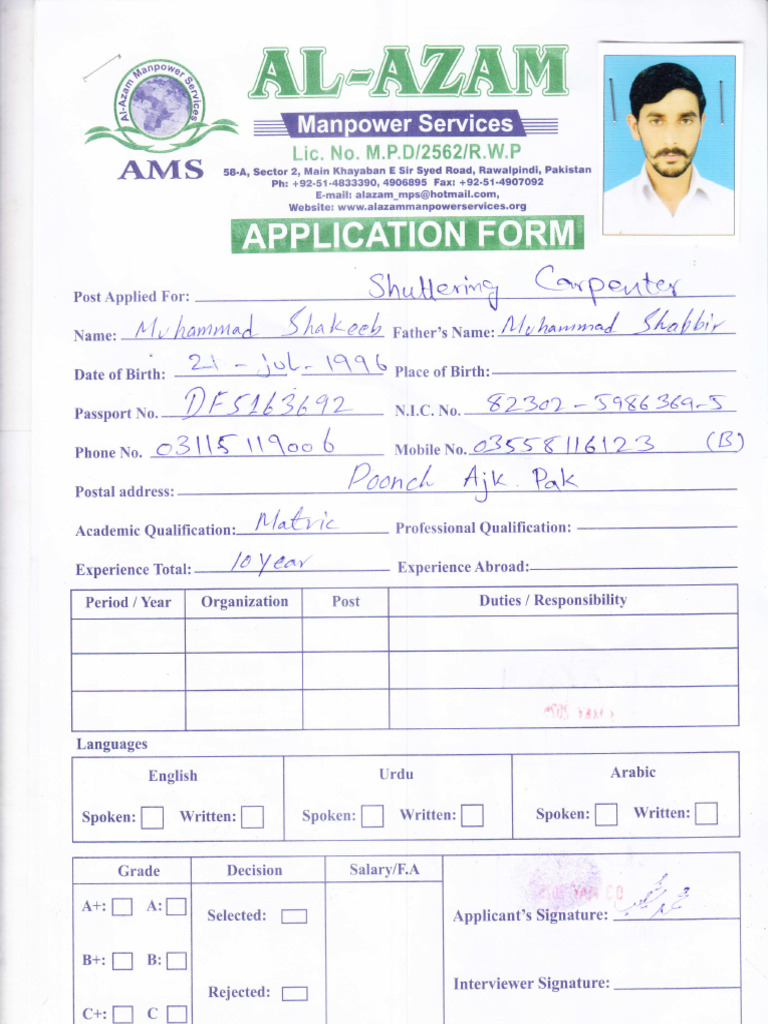 Al-Azam Manpower Services
AMS
AL-AZAM
Manpower Services
Lic. No. M.P.D/2562/R.W.P
58-A, Sector 2, Main Khayaban E Sir Syed Road, Rawalpindi, Pakistan
Ph: +92-51-4833390, 4906895 Fax: +92-51-4907092
E-mail: alazam_mps@hotmail.com,
Website: www.alazammanpowerservices.org
APPLICATION FORM
Post Applied For: Shuttering Carpenter
Name: Muhammad Shakeeb Father's Name: Muhammad Shabbir
Date of Birth: 21-Jul-1996 Place of Birth:
Passport No. DF5163692 N.I.C. No. 82302-5986369-5
Phone No. 03115119006 Mobile No. 03558116123 (B)
Postal address: Poonch Ajk. Pak
Academic Qualification: Matric Professional Qualification:
Experience Total: 10 Year Experience Abroad:
Period / Year Organization Post Duties / Responsibility
Languages
English Urdu Arabic
Spoken: Written: Spoken: Written: Spoken: Written:
Grade Decision Salary/F.A
A+: A: Selected: Applicant's Signature:
B+: B:
Rejected: Interviewer Signature:
C+: C